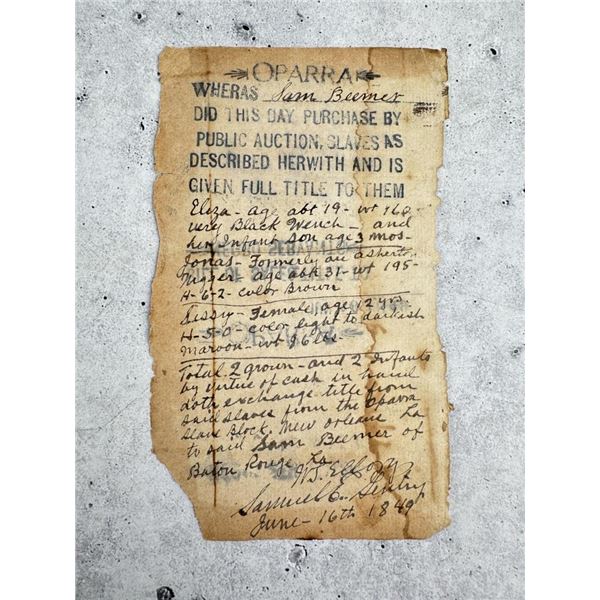 OPARRA
WHERAS Sam Beemer
DID THIS DAY PURCHASE BY
PUBLIC AUCTION, SLAVES AS
DESCRIBED HERWITH AND IS
GIVEN FULL TITLE TO THEM
Eliza - age abt 19 - wt 160 -
very Black Wench - and
her Infant son age 3 mos -
Jonas - Formerly an asherto
Nigger age abt 31 - wt 195 -
H-6-2 - color Brown
Sissy - Female age 12 yrs -
H-5-0 - color light to darkish
Maroon - wt 96 lbs -
Total 2 grown - and 2 Infants
by virtue of cash in hand
doth exchange title from
said slaves from the Oparra
Slave Block, New Orleans La
to said Sam Beemer of
Baton Rouge, La
Samuel E. Sentry
June - 16th 1849